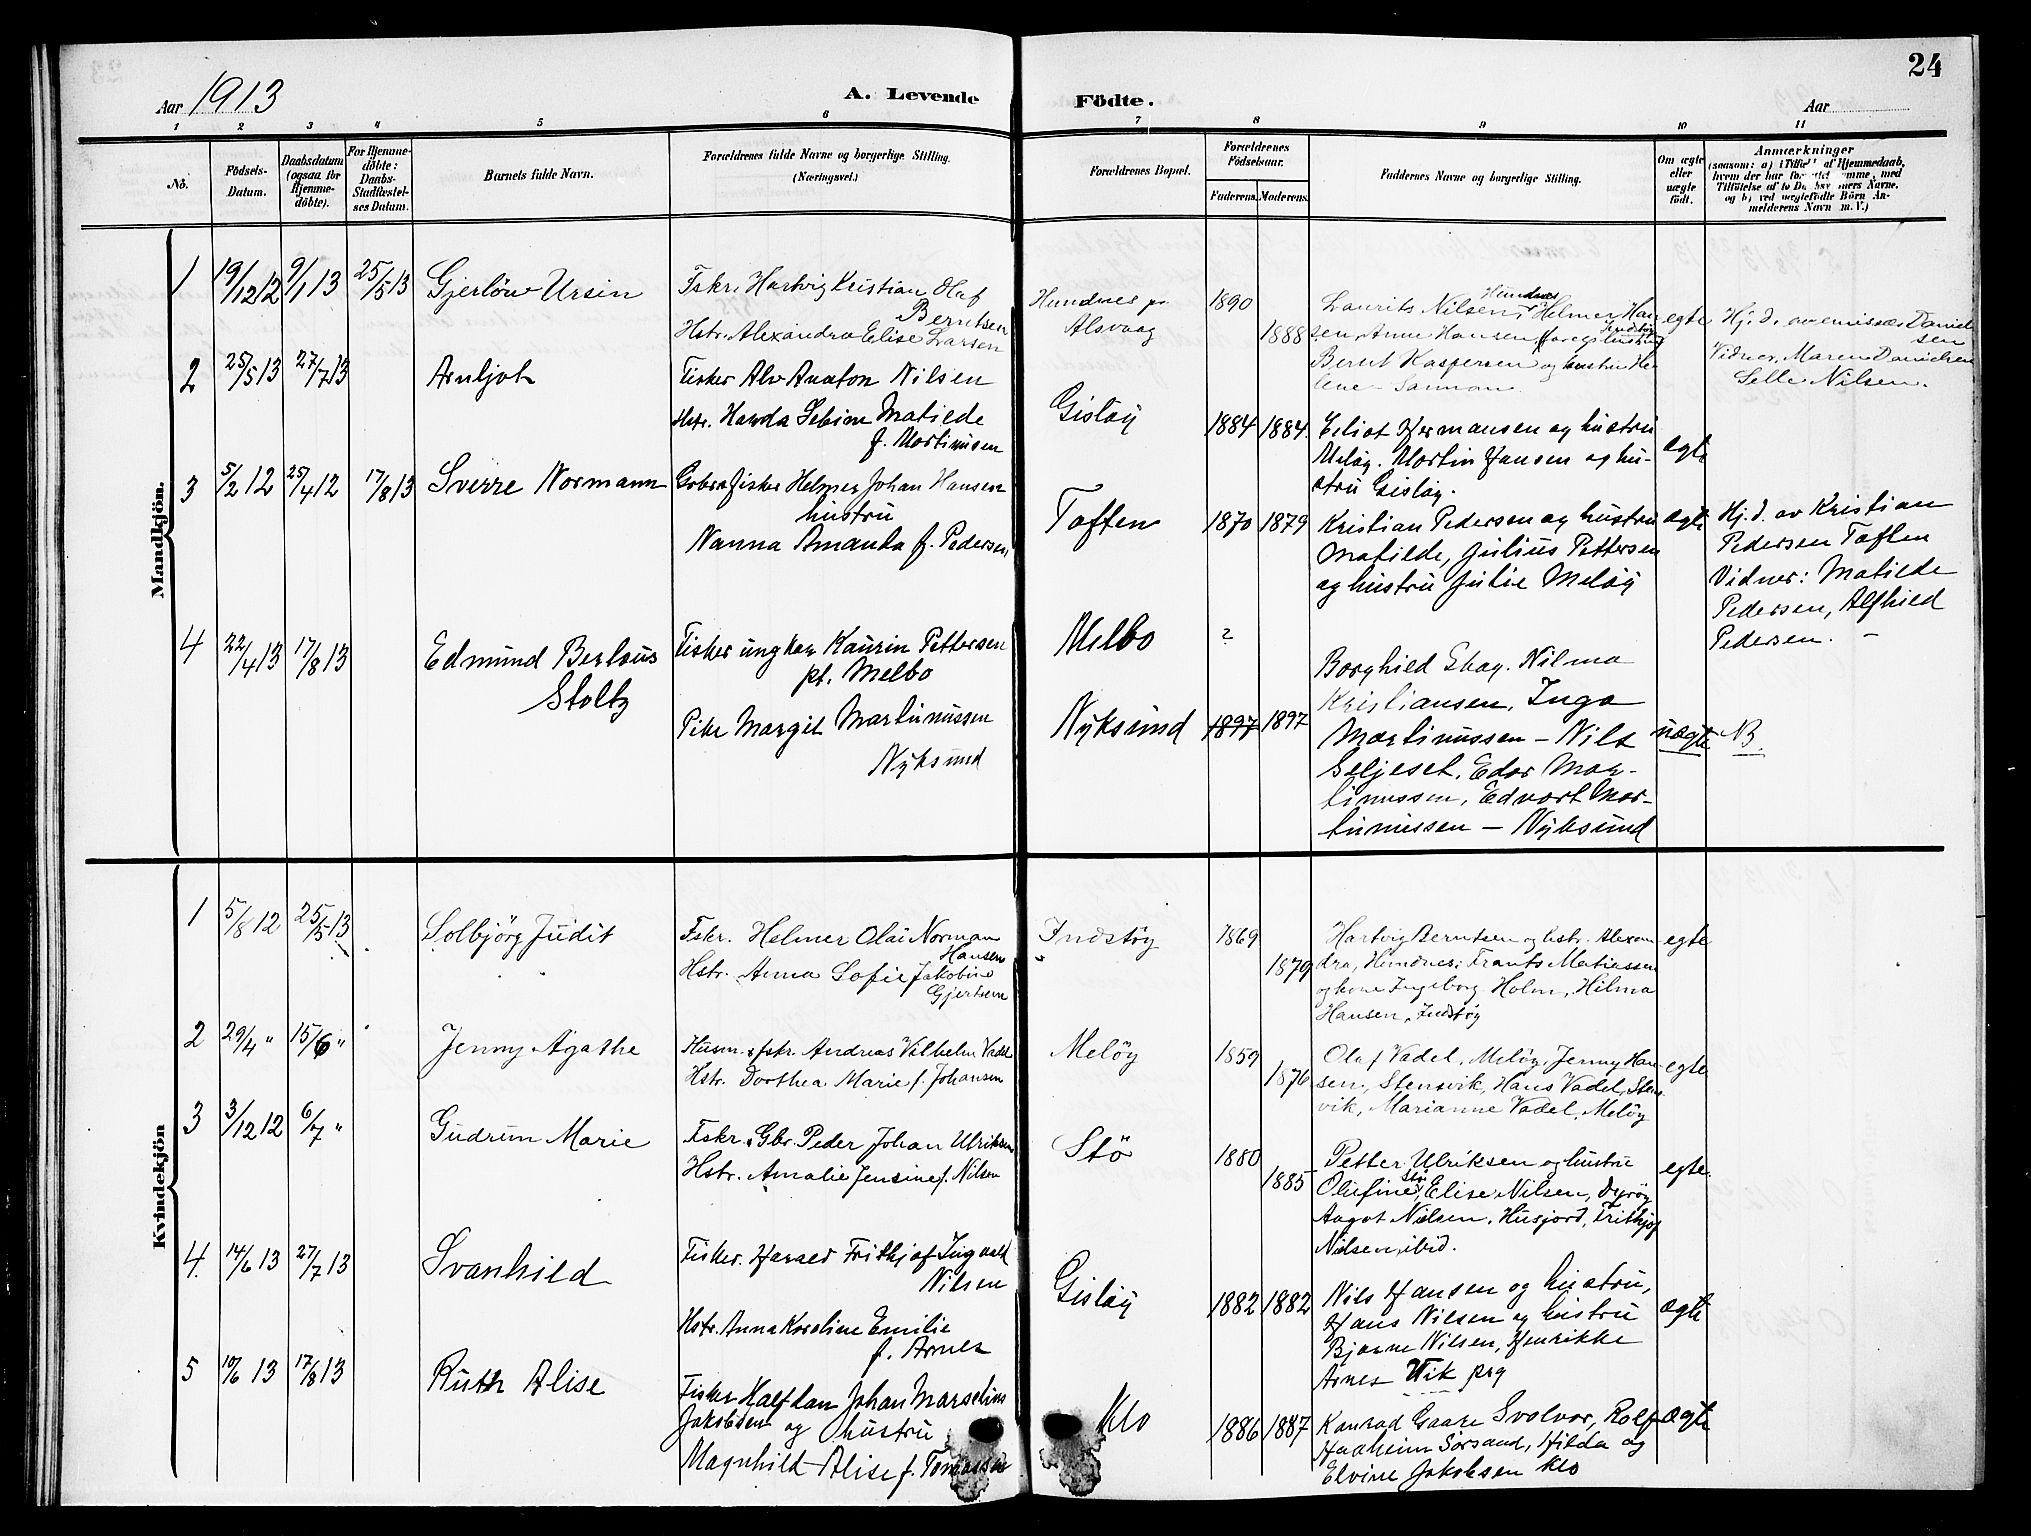 24
Aar 1913
A. Levende Födte.
Aar
1 2 3 4 5 6 7 8 9 10 11
No.
Födsels-Datum.
Daabsdatum (ogsaa for Hjemme-döbte).
For Hjemme-döbte: Daabs-Stadfæstel-ses Datum.
Barnets fulde Navn.
Forældrenes fulde Navne og borgerlige Stilling.
(Næringsvei.)
Forældrenes Bopæl.
Forældrenes Födselsaar.
Faderens. Moderens.
Faddernes Navne og borgerlige Stilling.
Om ægte eller uægte födt.
Anmærkninger
(saasom: a) i Tilfælde af Hjemmedaab,
hvem der har forrettet samme, med
Tilföielse af to Daabsvidners Navne.
og b) ved uægtefödte Börn An-
melderens Navn m. V.)
Mandkjön.
1 19/12 12 9/1 13 25/5 13 Gjerlöw Ursin
Fskr. Hartvig Kristian Olaf
Berntsen
Hstr. Alexandra Elise Larsen
Hundnes pr.
Alsvaag
1890 1888
Laurits Nilsen, Hundnes, Helmer Han-
sen, Anne Hansen,
Bernt Kaspersen og hustru He-
lene
egte
Hj. d. av emissær Daniel-
sen
Vidner, Maren Danielsen
Selle Nilsen.
2 25/5 13 27/7 13 Arnljot
Fisker Alv Anaton Nilsen
Hstr. Hawda Sebine Matilde
f. Martinusen
Gisløy
1884 1884.
Eliot Hermansen og hustru
Meløy. Martin Hansen og hu-
stru Gisløy.
ægte
3 5/2 12 25/4 12 17/8 13 Sverre Normann
Grbr. fisker Helmer Johan Hansen
hustru
Nanna Amanda f. Pedersen
Toften
1870 1879
Kristian Pedersen og hustru
Matilde, Julius Pettersen
og hustru Julie Meløy
ægte
Hj. d. av Kristian
Pedersen Toften
Vidner: Matilde
Pedersen, Alfhild
Pedersen. –
4 22/4 13 17/8 13 Edmund Berhaus
Stoltz
Fisker ungkar Kaurin Pettersen
pt. Melbo
Pike Margit Martinussen
Nyksund
Melbo
Nyksund
?
1897 1897
Borghild Skag. Nilma
Kristiansen, Inga
Martinussen – Nils
Seljeset. Edor Mar-
tinussen, Edvart Mar-
tinussen – Nyksund
uægte
NB.
Kvindekjön
1 5/8 12 25/5 13 Solbjörg Judit
Fskr. Helmer Olai Norman
Hansen
Hstr. Anna Sofie Jakobine
Gjertsen
Indstøy
1869 1879
Hartvig Berntsen og hstr. Alexan-
dra, Hundnes; Frants Matiassen
og kone Ingeborg Holm, Hilma
Hansen, Indstøy
egte
2 29/4 " 15/6 " Jenny Agathe
Husm. & fskr. Andreas Vilhelm Vadel
Hstr. Dorthea Marie f. Johansen
Meløy
1859 1876
Olaf Vadel, Meløy, Jenny Han-
sen, Stensvik, Hans Vadel, Stens-
vik, Marianne Vadel, Meløy
egte
3 3/12 12 6/7 " Gudrun Marie
Fskr. & Gbr. Peder Johan Ulriksen
Hstr. Amalie Jensine f. Nilsen
Stö
1880 1885
Petter Ulriksen og hustru
Olufine, Stö, Elise Nilsen, Dyrøy
Aagot Nilsen, Husjord, Frithjof
Nilsen, ibid.
egte.
4. 14/6 13 27/7 13 Svanhild
Fisker. Harald Frithjof Ingvald
Nilsen
Hstr. Anna Karoline Emilie
f. Arnes
Gisløy
1882 1882
Nils Hansen og hustru,
Hans Nilsen og hustru
Bjarne Nilsen, Henrikke
Arnes Vik prg
ægte
5 10/6 13 17/8 13 Ruth Alise
Fisker Halfdan Johan Marselius
Jakobsen og hustru
Magnhild Alise f. Tomassen
Klo
1886 1887
Konrad Gaare Svolvær, Rolf
Haaheim Sørsand, Hilda og
Elvine Jakobsen Klo
ægte